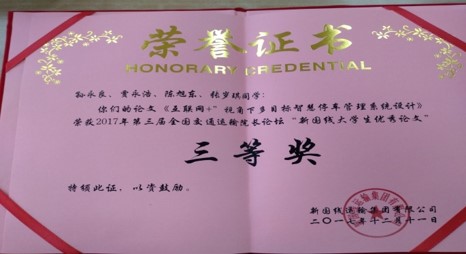 荣誉证书
HONORARY CREDENTIAL
孙永良、贾永浩、陈旭东、张岁琪同学：
你们的论文《互联网+”视角下多目标智慧停车管理系统设计》
荣获2017年第三届全国交通运输院长论坛“新国线大学生优秀论文”
三等奖
特颁此证，以资鼓励。
新国线运输集团有限公司
二〇一七年十二月十一日